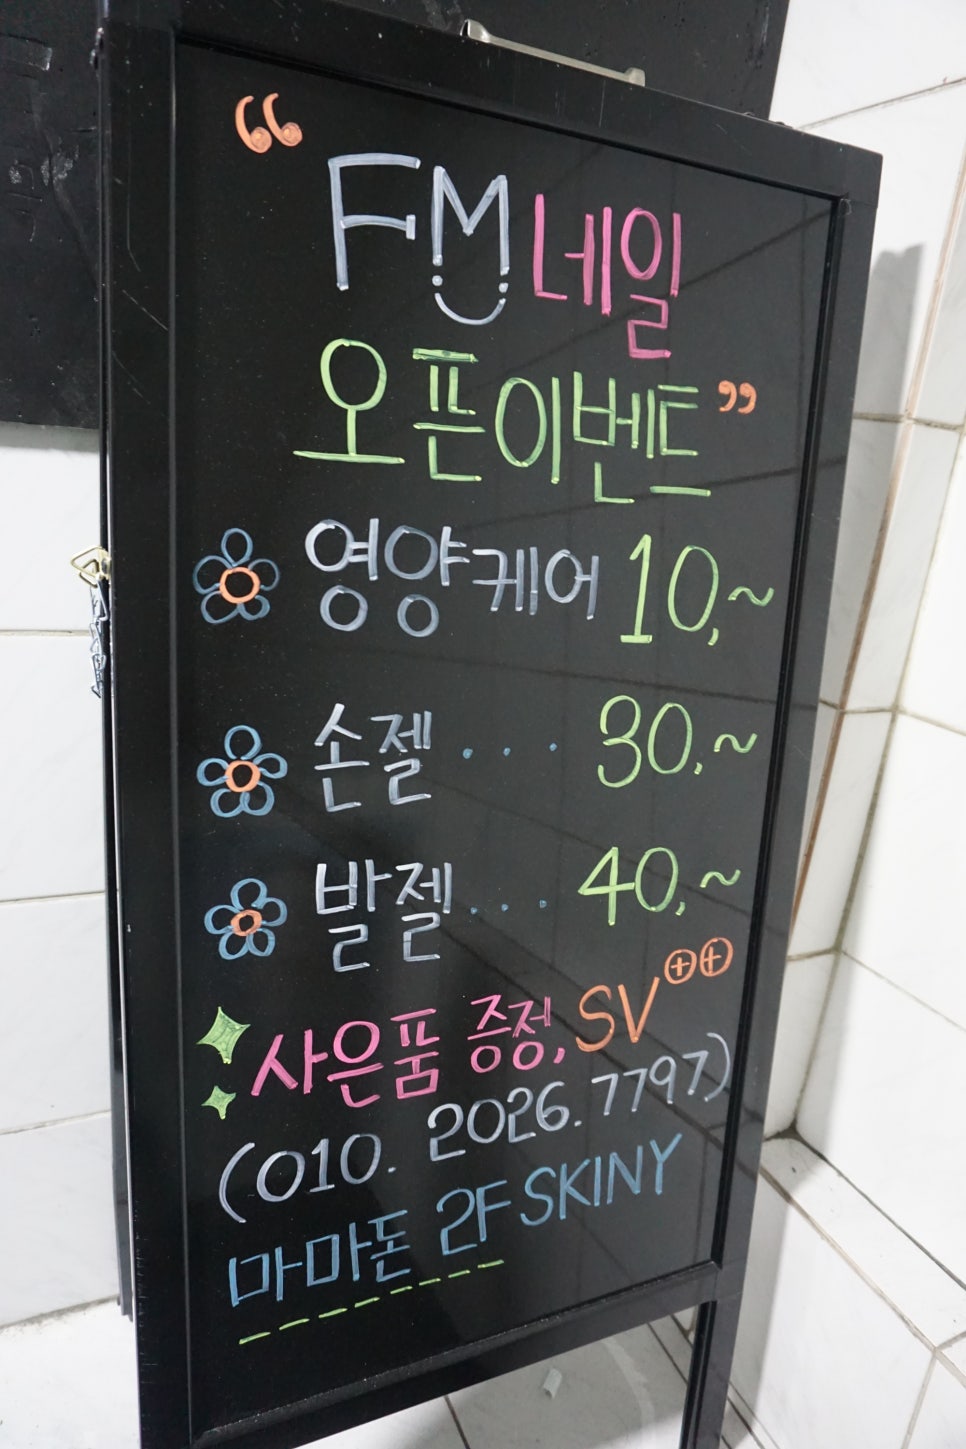 “FM네일
오픈이벤트”
영양케어 10,~
손젤 ... 30.~
발젤... 40,~
사은품 증정, SV⊕⊕
(010. 2026. 7797)
마마돈 2F SKINY